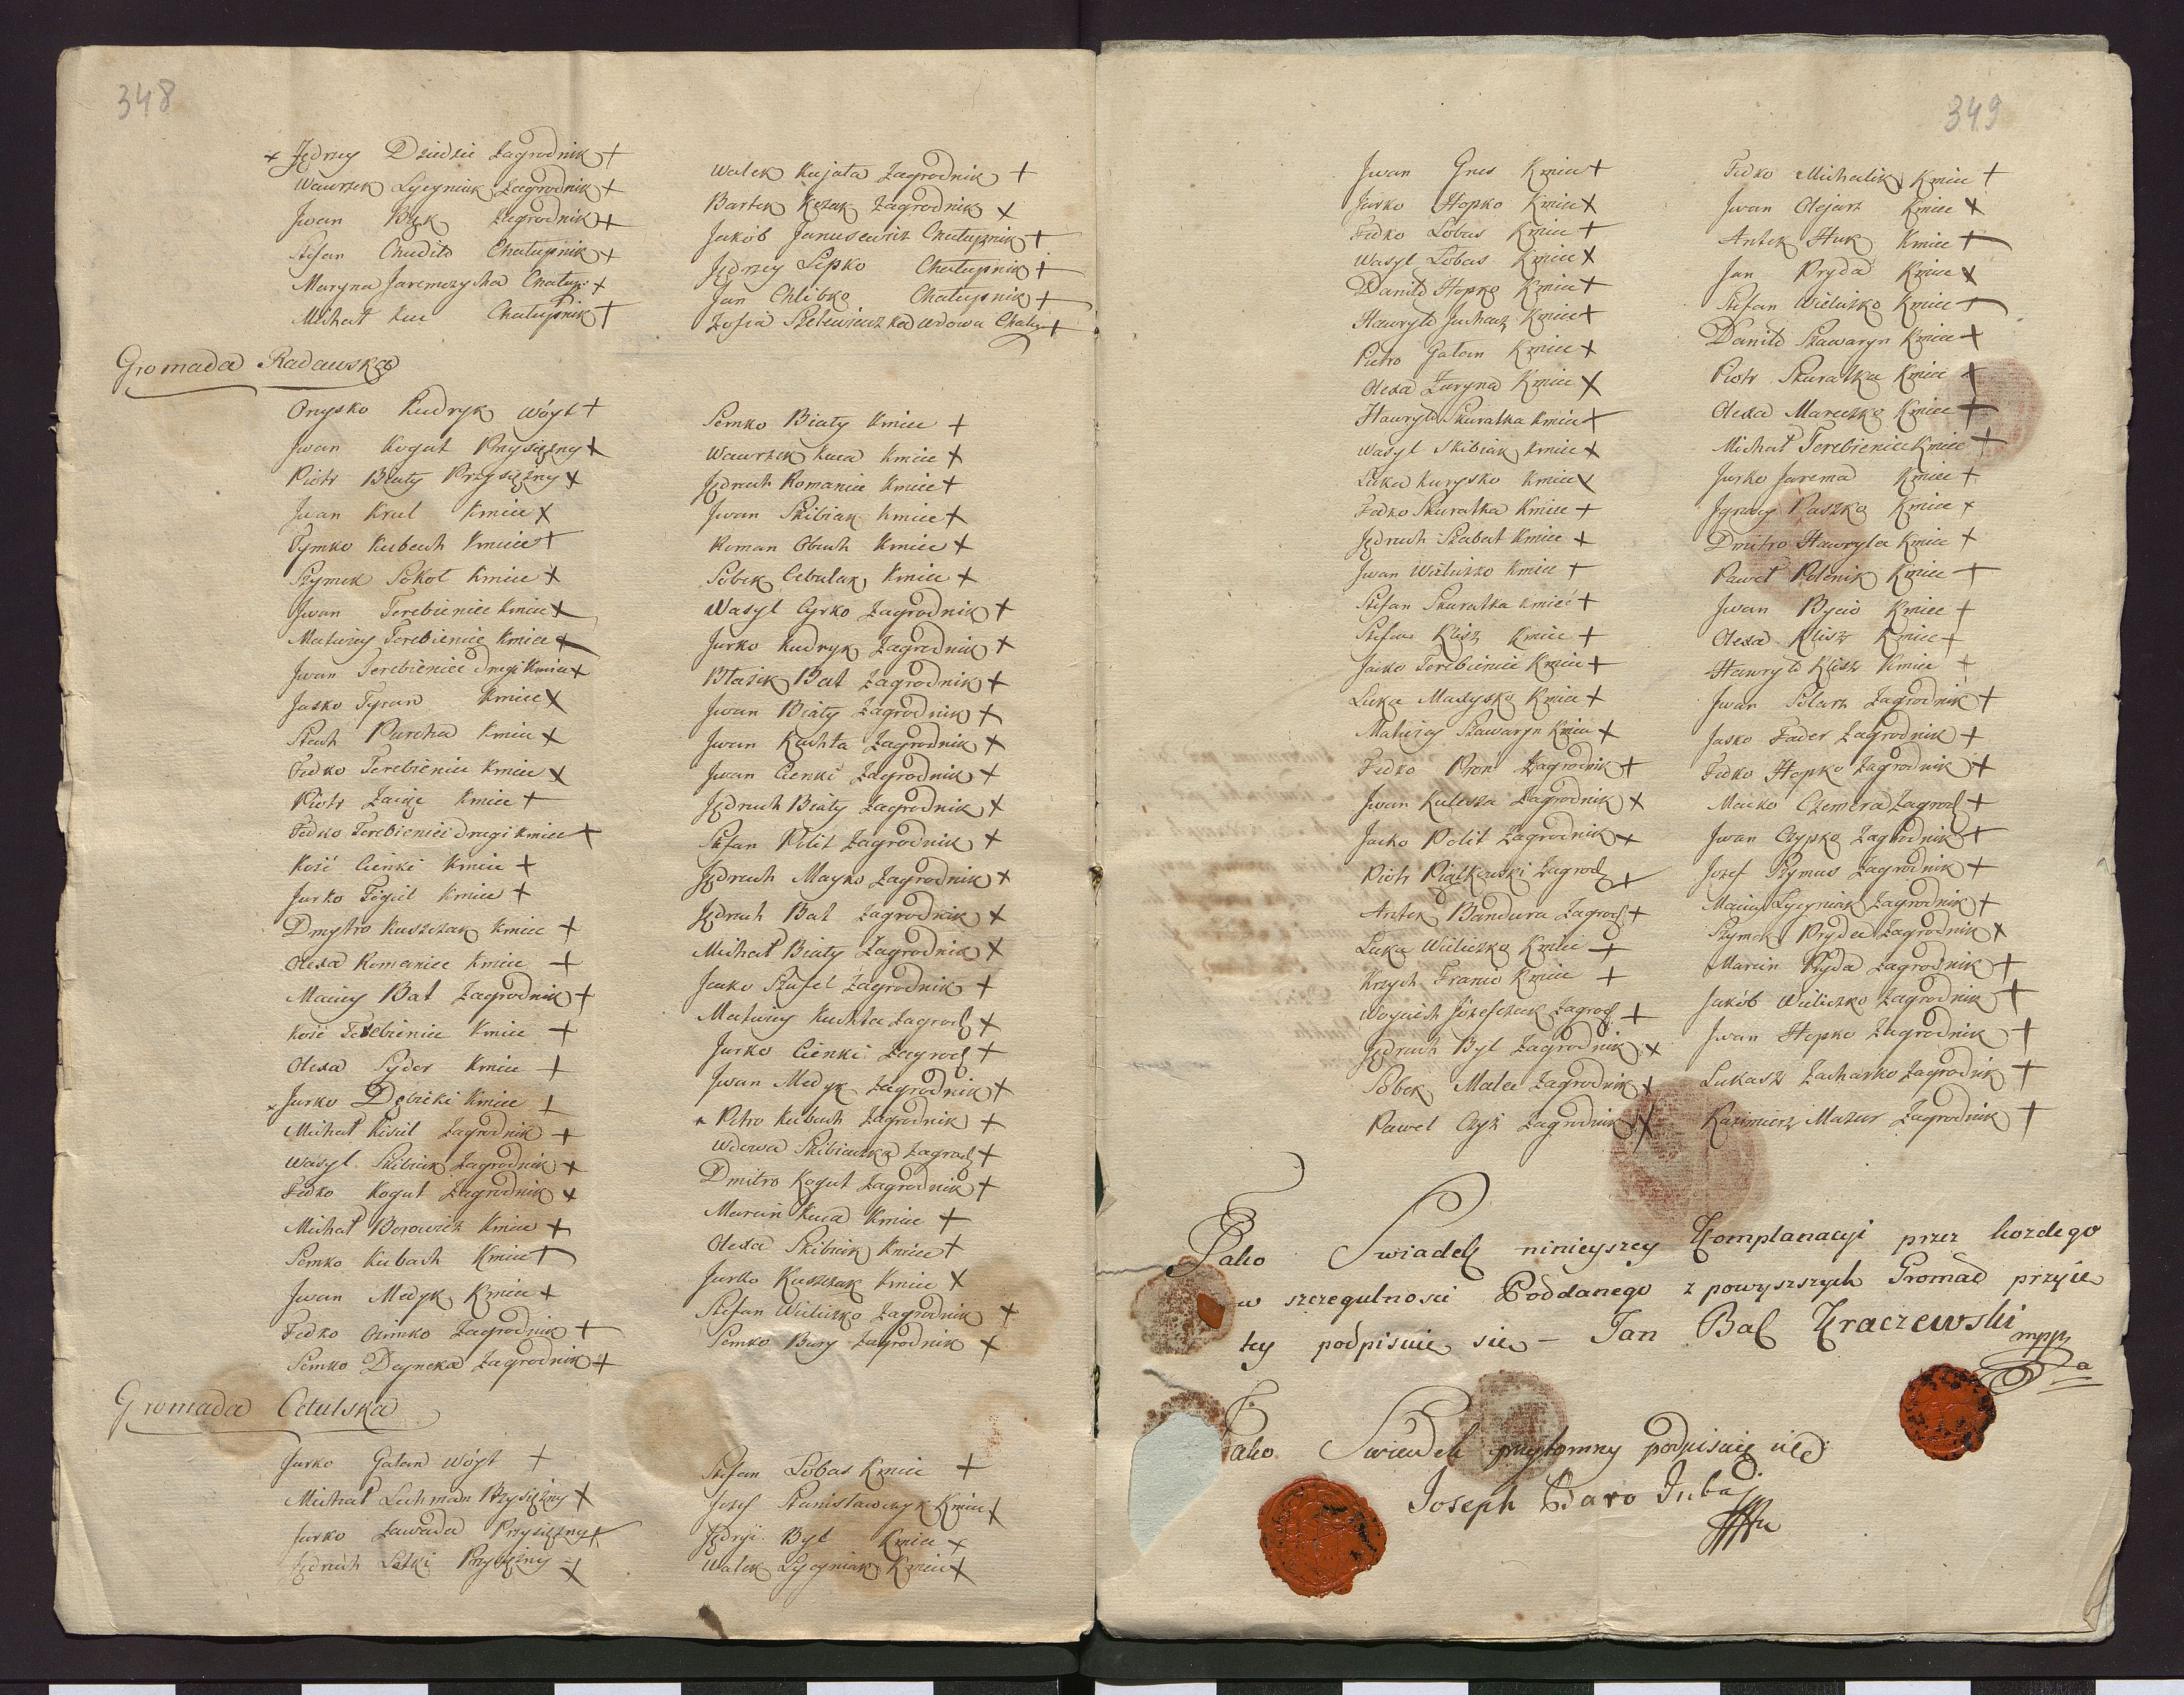 348
Jędrzey Dziedzic Zagrodnik +
Wawrzek Łycyniak Zagrodnik +
Jwan Bąk Zagrodnik +
Stefan Chudiło Chałupnik +
Maryna Jaremczycha Chałup: +
Michał Kuc Chałupnik +
Walek Kujata Zagrodnik +
Bartek Kozak Zagrodnik +
Jakób Janusewicz Chałupnik +
Jędrzey Lipko Chałupnik +
Jan Chlibko Chałupnik +
Zofia wdowa Chałup +
Gromada Radawska
Onysko Kudryk Wóyt +
Jwan Kogut Przysiężny +
Piotr Biały Przysiężny +
Jwan Krul Kmiec +
Tymko Kubach Kmiec +
Szymek Sokoł Kmiec +
Jwan Terebieniec Kmiec +
Matwiey Terebieniec Kmiec +
Jwan Terebieniec drugi Kmiec +
Jasko Tyran Kmiec +
Stach Purcha Kmiec +
Fedko Terebieniec Kmiec +
Piotr Zając Kmiec +
Fedko Terebieniec drugi Kmiec +
Kość Cienki Kmiec +
Jurko Figiel Kmiec +
Dmytro Kuszczak Kmiec +
Olexa Romaniec Kmiec +
Maciey Bał Zagrodnik +
Kość Terebieniec Kmiec +
Olexa Syder Kmiec +
Jurko Dębicki Kmiec +
Michał Kisiel Zagrodnik +
Wasyl Skibiak Zagrodnik +
Fedko Kogut Zagrodnik +
Michał Borowicz Kmiec +
Semko Kubach Kmiec +
Jwan Medyk Kmiec +
Fedko Zagrodnik +
Semko Deyneka Zagrodnik +
Semko Biały Kmiec +
Wawrzek Kuca Kmiec +
Jędruch Romaniec Kmiec +
Jwan Skibiak Kmiec +
Roman Obuch Kmiec +
Sobek Cebulak Kmiec +
Wasyl Cyrko Zagrodnik +
Jurko Kudryk Zagrodnik +
Błażek Bał Zagrodnik +
Jwan Biały Zagrodnik +
Jwan Kuchta Zagrodnik +
Jwan Cienki Zagrodnik +
Jędruch Biały Zagrodnik +
Stefan Polit Zagrodnik +
Jędruch Mayko Zagrodnik +
Jędruch Bał Zagrodnik +
Michał Biały Zagrodnik +
Jacko Szufel Zagrodnik +
Matwiey Kuchta Zagrod +
Jurko Cienki Zagrod +
Jwan Medyk Zagrodnik +
Petro Kubach Zagrodnik +
Wdowa Skibiaczka Zagrod +
Dmitro Kogut Zagrodnik +
Marcin Kuca Kmiec +
Olexa Skibiak Kmiec +
Jurko Kuszczak Kmiec +
Stefan Wieliczko Zagrodnik +
Semko Bury Zagrodnik +
Gromada Cetulska
Jurko Gałan Wóyt +
Michał Lechman Przysiężny +
Jurko Zawada Przysiężny +
Jędruch Letki Przysiężny +
Stefan Lobas Kmiec +
Jozef Stanisławczyk Kmiec +
Jędrzi Byl Kmiec +
Walek Łycyniak Kmiec +
349
Jwan Gnes Kmiec +
Jurko Hopko Kmiec +
Fedko Lobas Kmiec +
Wasyl Lobas Kmiec +
Daniło Hopko Kmiec +
Hawryło Juchacz Kmiec +
Pietro Gałan Kmiec +
Olexa Zaryna Kmiec +
Hawryło Skuratka Kmiec +
Wasyl Skibiak Kmiec +
Luka Kurysko Kmiec +
Fedko Skuratka Kmiec +
Jędruch Szabat Kmiec +
Jwan Wieliczko Kmiec +
Stefan Skuratka Kmieć +
Stefan Klisz Kmiec +
Jacko Terebieniec Kmiec +
Luka Madysko Kmiec +
Matwiey Szawaryn Kmiec +
Fedko Proń Zagrodnik +
Jwan Kulesza Zagrodnik +
Jacko Polit Zagrodnik +
Piotr Piątkowski Zagrod +
Antek Bandura Zagrod +
Luka Wieliczko Kmiec +
Krzych Franio Kmiec +
Woyciech Józefczak Zagrod +
Jędruch Byl Zagrodnik +
Sobek Malec Zagrodnik +
Paweł Czyż Zagrodnik +
Fedko Michalik Kmiec +
Jwan Olejarz Kmiec +
Antek Huk Kmiec +
Jan Pryda Kmiec +
Stefan Wieliczko Kmiec +
Daniło Szawaryn Kmiec +
Piotr Skuratka Kmiec +
Olexa Mareczko Kmiec +
Michał Terebieniec Kmiec +
Jurko Jarema Kmiec +
Jgnacy Paszko Kmiec +
Dmitro Hawryła Kmiec +
Paweł Polenik Kmiec +
Jwan Bycio Kmiec +
Olexa Klisz Kmiec +
Hawryło Klisz Kmiec +
Jwan Stolarz Zagrodnik +
Jasko Fader Zagrodnik +
Fedko Hopko Zagrodnik +
Macko Czemera Zagrod +
Jwan Czypko Zagrodnik +
Jozef Szymus Zagrodnik +
Maciey Łycyniak Zagrodnik +
Szymek Pryda Zagrodnik +
Marcin Pryda Zagrodnik +
Jakób Wieliczko Zagrodnik +
Jwan Hopko Zagrodnik +
Łukasz Zacharko Zagrodnik +
Kazimierz Mazur Zagrodnik +
Jako Swiadek ninieyszey Komplanacyi przez kozdego
w szczegulnosci Poddanego z powyszszych Gromad przyie
tey podpisuie sie – Jan Bal Kraczewski
mpp
Jako Swiadek przytomny podpisuię się
Joseph Baro